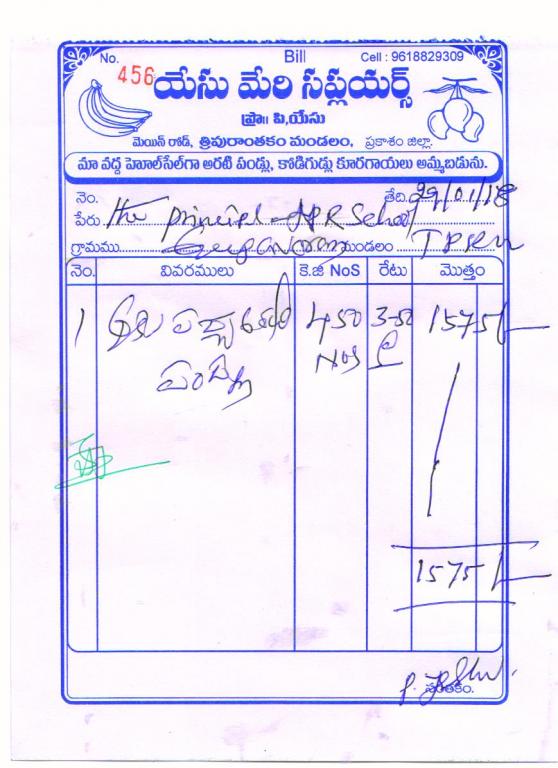 No. 456 Bill Cell : 9618829309
యేసు మేరి సప్లయర్స్
ప్రొ॥ పి.యేసు
మెయిన్ రోడ్, త్రిపురాంతకం మండలం, ప్రకాశం జిల్లా.
మా వద్ద హెూల్‌సేల్‌గా అరటి పండ్లు, కోడిగుడ్లు కూరగాయలు అమ్మబడును.
నెం. తేది 29/01/18
పేరు The principal APR School
గ్రామము మండలం TPRM
నెం. వివరములు కె.జి NoS రేటు మొత్తం
1 450 3-50 1575/-
Nos
1575/-
P. Yesu
సంతకం.